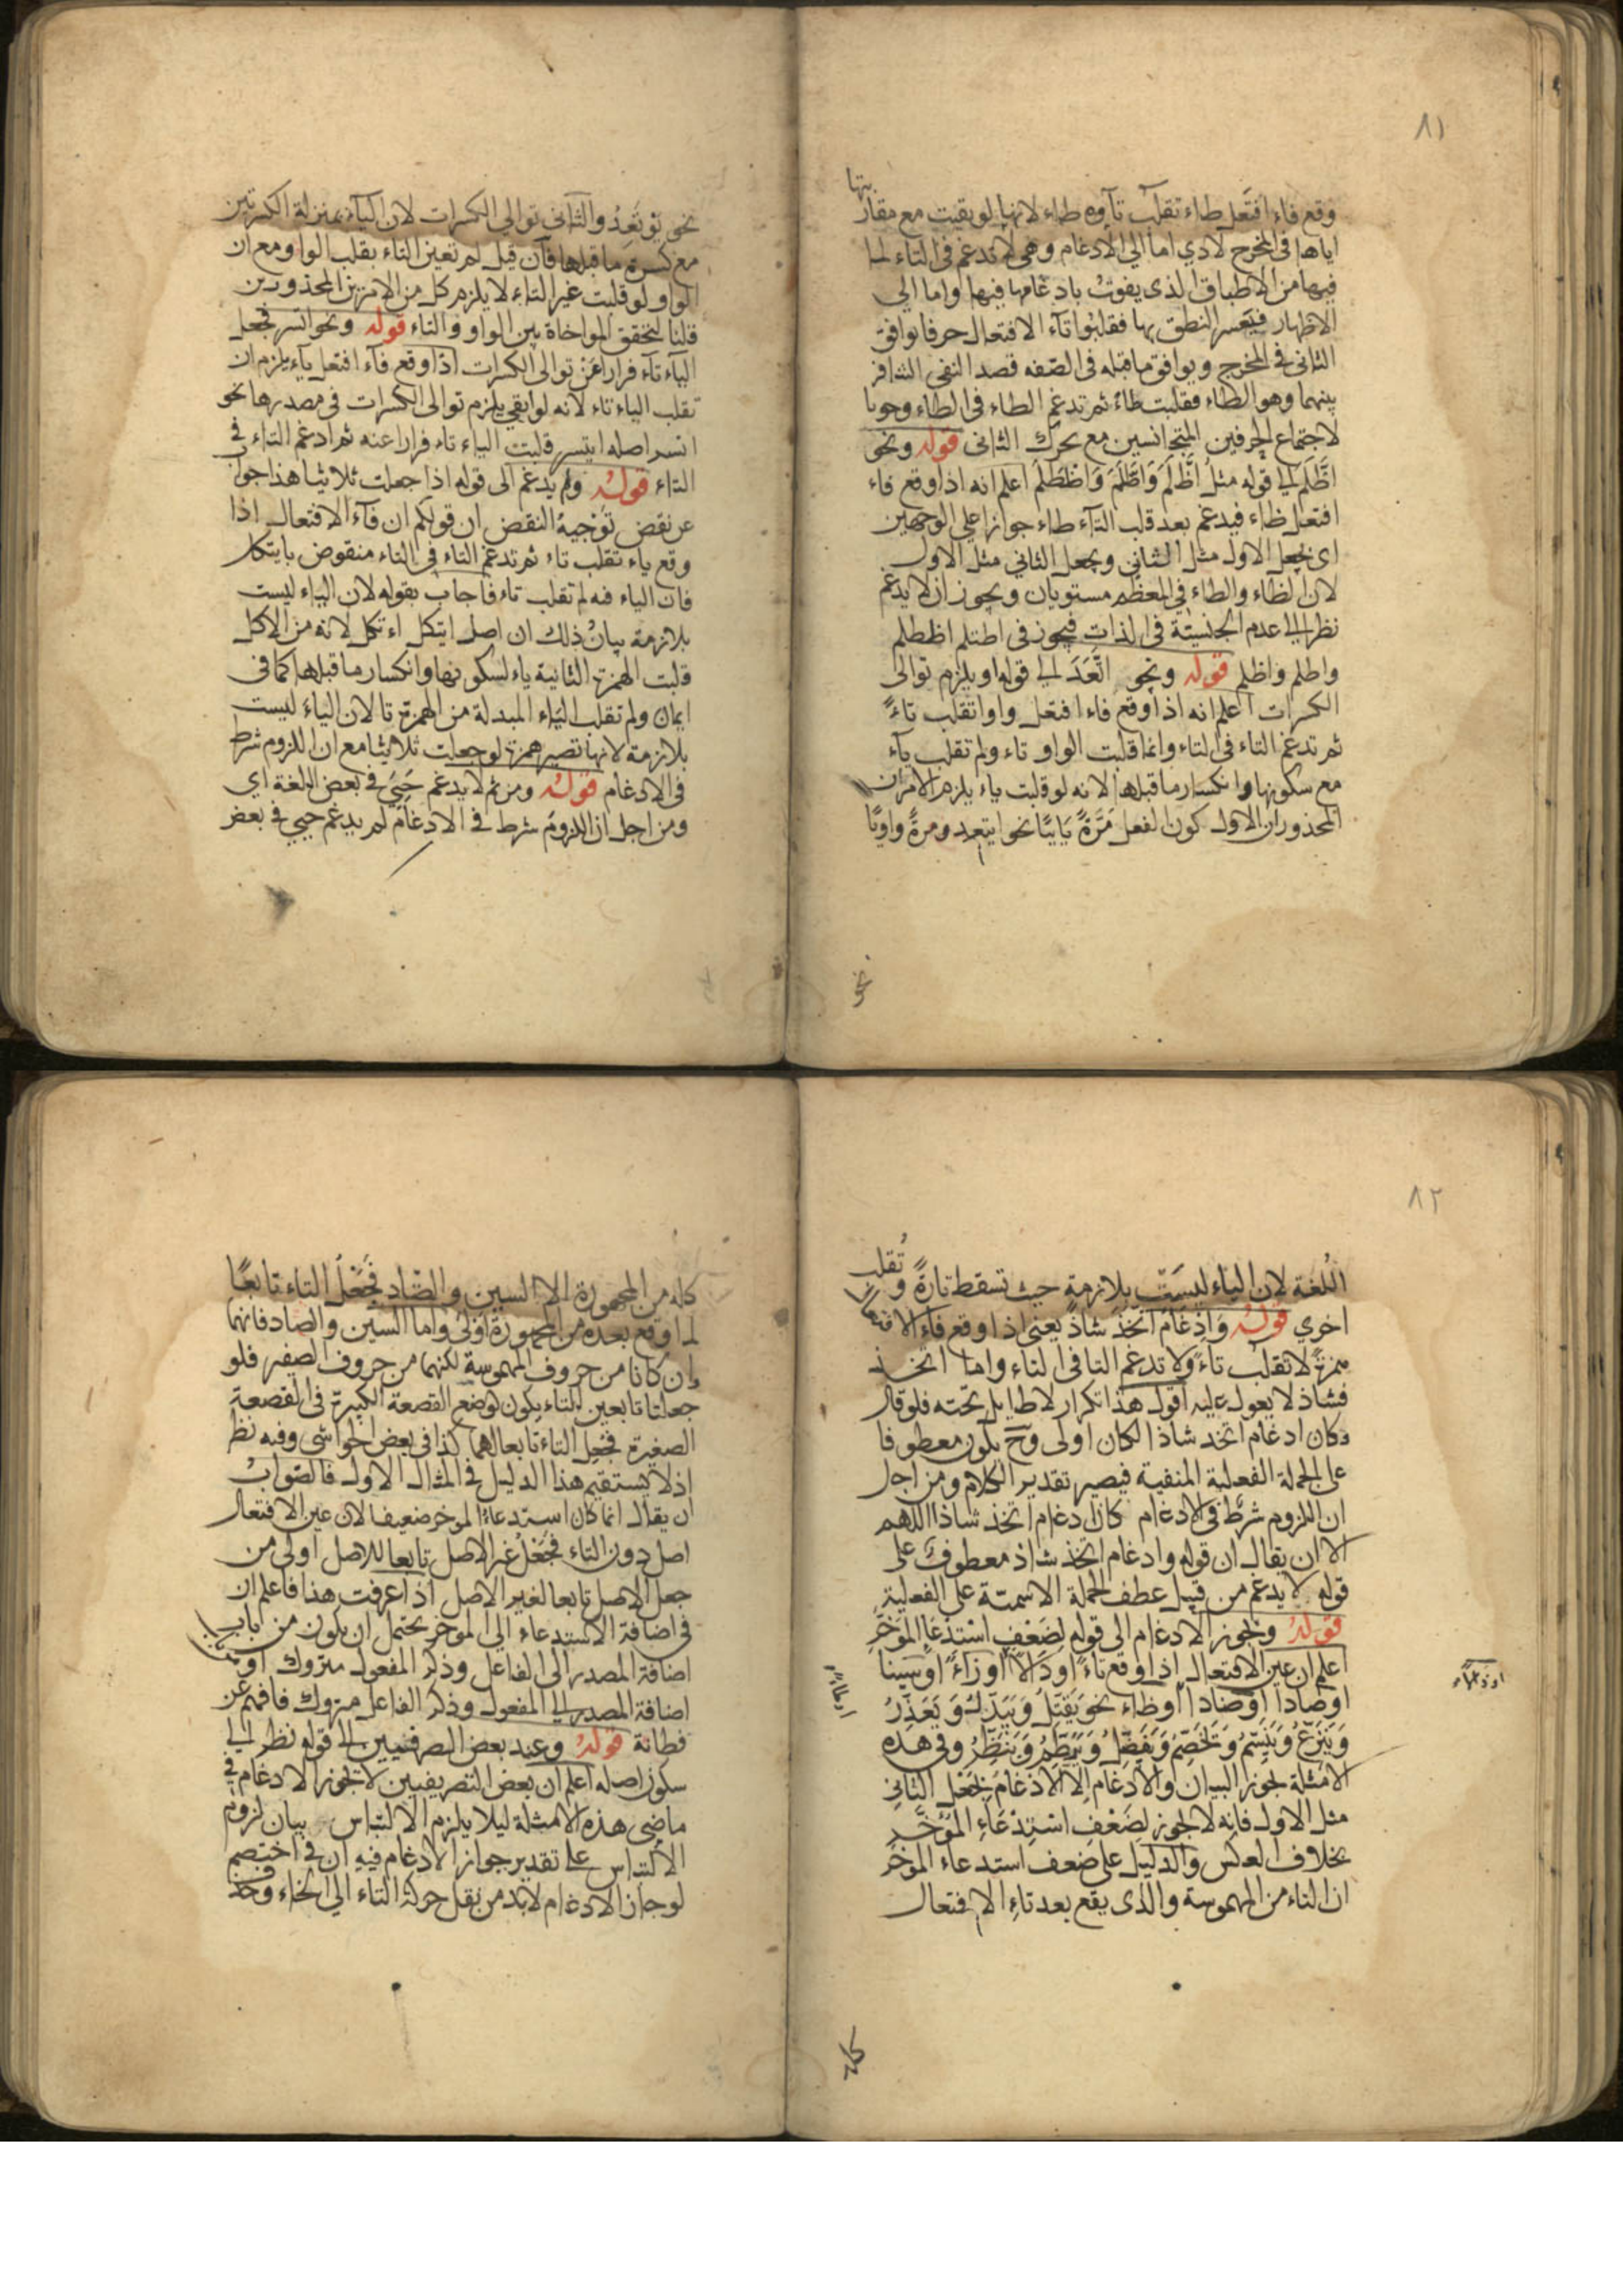 ٨١
وقع فاء افتعل طاء تقلب تاؤه طاء لانها لو بقيت مع مقاربتها
اياها فى المخرج لادي اما الي الادغام وهى لا تدغم فى التاء لما
فيها من الاطباق الذى يفوت بادغامها فيها واما الي
الاظهار فيتعسر النطق بها فقلبوا تآء الافتعال حرفا يوافق
الثانى فى المخرج ويوافق ماقبله فى الصفه قصد النفى التنافر
بينهما وهو الطاء فقلبت طاءً ثم تدغم الطاء فى الطاء وجوبا
لاجتماع الحرفين المتجانسين مع تحرك الثانى قوله ونحو
اظَّلَمَ الي قوله مثل اظَّلَمَ وَاطَّلَمَ وَاظْطَلَمَ اعلم انه اذا وقع فاء
افتعل ظاء فيدغم بعد قلب التآء طاء جوازا علي الوجهين
اى بجعل الاول مثل الثاني وبجعل الثاني مثل الاول
لان الظاء والطاء في العظم مستويان ويجوز ان لا يدغم
نظرا الي عدم الجنسيّة فى الذات فيجوز فى اظتلم اظطلم
واطلم واظلم قوله ونحو اتَّعَدَ الي قوله او يلزم توالى
الكسرات اعلم انه اذا وقع فاء افتعل واوا تقلب تاءً
ثم تدغم التاء فى التاء وانما قلبت الواو تاء ولم تقلب يآء
مع سكونها وانكسار ماقبلها لانه لو قلبت ياء يلزم الامران
المحذوران الاول كون الفعل مَرَّةً يَايِيًّا نحو ايتعد ومرةً واويًّا
نحو
نحو يَوْتَعِدُ والثانى توالي الكسرات لان اليآء بمنزلة الكسرتين
مع كسرة ماقبلها فان قيل لم تعين التاء بقلب الواو مع ان
الواو لو قلبت غير التاء لا يلزم كل من الامرين المحذورين
قلنا لتحقق المواخاة بين الواو والتاء قوله ونحو اتسر فجعل
اليآء تآء فرارا عَنْ توالى الكسرات اذا وقع فآء افتعل يآء يلزم ان
تقلب الياء تاء لانه لو ابقي يلزم توالى الكسرات فى مصدرها نحو
اتسر اصله ايتسر قلبت الياء تاء فرارا عنه ثم ادغم التاء فى
التاء قوله ولم يدغم الى قوله اذا جعلت ثلاثيا هذا جواب
عن نقض توجيه النقض ان قولكم ان فآء الافتعال اذا
وقع ياء تقلب تاء ثم تدغم التاء فى التاء منقوض بايتكل
فان الياء فيه لم تقلب تاء فاجاب بقوله لان الياء ليست
بلازمة بيانُ ذلك ان اصل ايتكل اءتكل لانه من الاكل
قلبت الهمزة الثانية ياء لسكونها وانكسار ماقبلها كما فى
ايمان ولم تقلب الياء المبدلة من الهمزة تا لان الياء ليست
بلازمة لانها تصير همزة لو جعلت ثلاثيا مع ان اللزوم شرط
فى الادغام قوله ومن ثم لا يدغم حَيِيَ فى بعض اللغة اي
ومن اجل ان اللزوم شرط فى الادغام لم يدغم حيي فى بعض
٨٢
اللغة لان الياء ليسَتْ بلازمة حيث تسقط تارةً وتُقلب
اخري قوله وَادْغَام اتخَذَ شاذ يعنى اذا وقع فاء الافتعال
همزةً لا تقلب تاءً ولا تدغم التا فى التاء واما اتخذ
فشاذ لا يعول عليه اقول هذا تكرار لا طايل تحته فلو قال
وكان ادغام اتخذ شاذا لكان اولى وح يكون معطوفا
على الجملة الفعلية المنفية فيصير تقدير الكلام ومن اجل
ان اللزوم شرط فى الادغام كان ادغام اتخذ شاذا اللهم
الا ان يقال ان قوله وادغام اتخذ شاذ معطوف على
قوله لا يدغم من قبيل عطف الجملة الاسمية على الفعلية
قوله ويجوز الادغام الى قوله لِضَعْفِ اسْتِدْعَاءِ المؤخَّرِ
اعلم ان عين الافتعال اذا وقع تاءً اودَالًا اوزاءً اوسينا
اوصادا اوضادا اوظاء نحو يَقْتَتِلُ وَيَبْتَدِلُ وَيَعْتَذِرُ
وَيَنْتَزِعُ وَيَبْتَسِمُ وَيَخْتَصِمُ وَيَنْتَضِلُ وَيَنْتَظِرُ وفى هذه
الامثلة يجوز البيان والادغام الا الادغام بجعل الثانى
مثل الاول فانه لا يجوز لِضَعْفِ اسْتِدْعَاءِ المؤخَّرِ
بخلاف العكس والدليل على ضعف استدعاء المؤخر
ان التاء من المهموسة والذى يقع بعد تاءِ الافتعال
كله
كله من المجهورة الا السين والصاد فَجَعْلُ التاء تابعًا
لما وقع بعده من المجهورة اولى واما السين والصاد فانهما
وان كانا من حروف المهموسة لكنهما من حروف الصفير فلو
جعلتا تابعين للتاء يكون كوضع القصعة الكبيرة فى القصعة
الصغيرة فجعل التاء تابعا لهما كذا فى بعض الحواشى وفيه نظر
اذ لا يستقيم هذا الدليل فى المثال الاول فالصواب
ان يقال انما كان استدعاء الموخر ضعيفا لان عين الافتعال
اصل دون التاء فَجَعْلُ غير الاصل تابعا للاصل اولى من
جعل الاصل تابعا لغير الاصل اذا عرفت هذا فاعلم ان
فى اضافة الاستدعاء الي الموخر يحتمل ان يكون من باب
اضافة المصدر الى الفاعل وذكر المفعول متروك او من باب
اضافة المصدر الي المفعول وذكر الفاعل متروك فافهم عن
فطانة قوله وعند بعض الصرفيين الي قوله نظر الي
سكون اصله اعلم ان بعض التصريفيين لا يجوز الادغام فى
ماضى هذه الامثلة ليلا يلزم الالتباس بيان لزوم
الالتباس على تقدير جواز الادغام فيه ان فى اختصم
لو جاز الادغام لابد من نقل حركة التاء الي الخاء وح